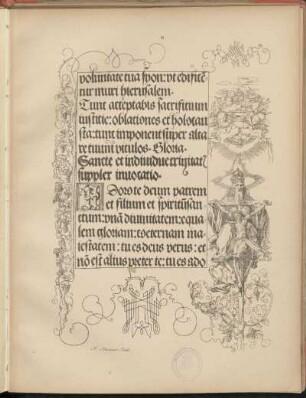 voluntate tua syon: vt edificē
tur muri hierusalem.
Tunc acceptabis sacrificium
iusticie: oblationes et holocau
sta: tunc imponent super alta
re tuum vitulos. Gloria.
Sancte et indiuidue trinitatis
supplex inuocatio.
Adoro te deum patrem
et filium et spiritūsan
ctum: vnā diuinitatem: equa
lem gloriam: coeternam ma
iestatem: tu es deus verus: et
nō est alius preter te: tu es ado